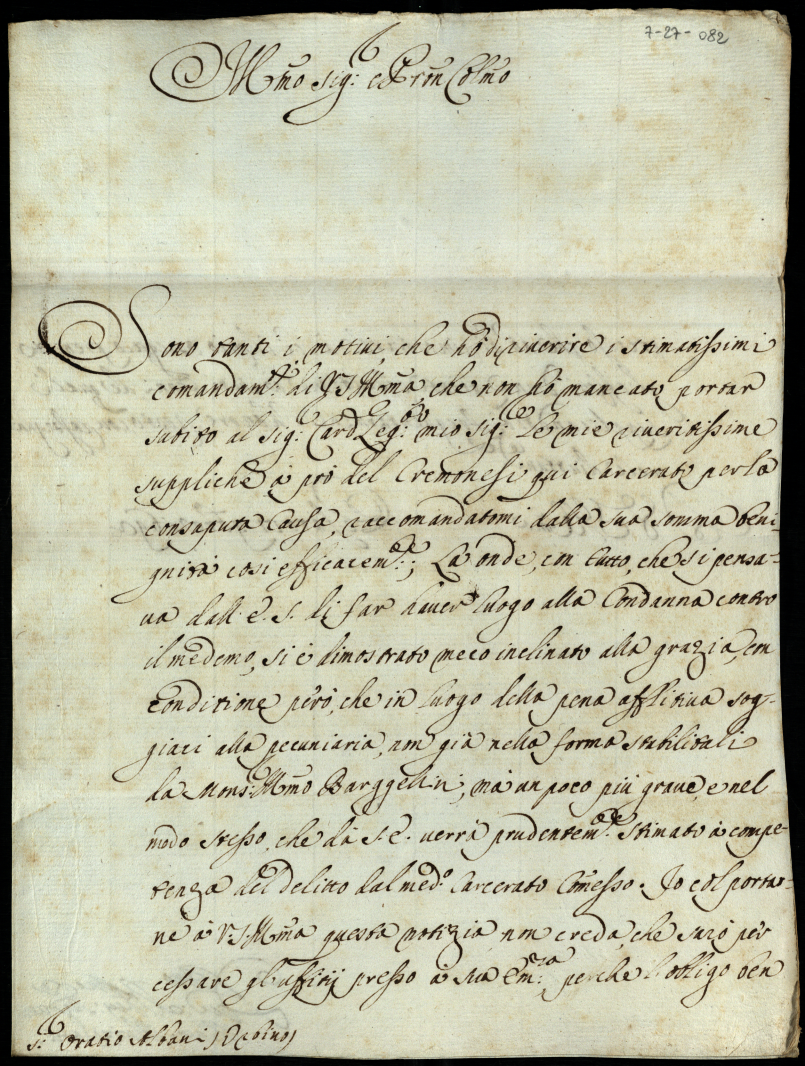 7-27-082
Ill:mo Sig:r e P̃ron Col:mo
Sono tanti i motivi, che hò di riverire i stimatissimi
comandam.ti di V.S. Ill:ma, che non hò mancato portar
subito al Sig:r Card. Leg:to mio Sig:re le mie riveritissime
suppliche à prò del Cremonesi quì Carcerato per la
consaputa Causa, raccomandatomi dalla sua somma beni-
gnità così efficacem.te; Laonde, con tutto, che si pensa-
va dall'E. S. di far haver luogo alla Condanna contro
il medemo, si è dimostrato meco inclinato alla grazia, con
conditione però, che in luogo della pena afflitiva sog-
giaci alla pecuniaria, non già nella forma stabilitali
da Mons:r Ill:mo Barggelini, mà un poco più grave, e nel
modo stesso, che da S. E. verrà prudentem.te stimato à compe-
tenza del delitto dal med.o Carcerato Com̃esso. Io col portar-
ne à V.S. Ill:ma questa notizia non creda, che sarò per
cessare gl'uffitij presso à sua Em:za, perche l'obligo ben
S:r Oratio Albani (Urbino)